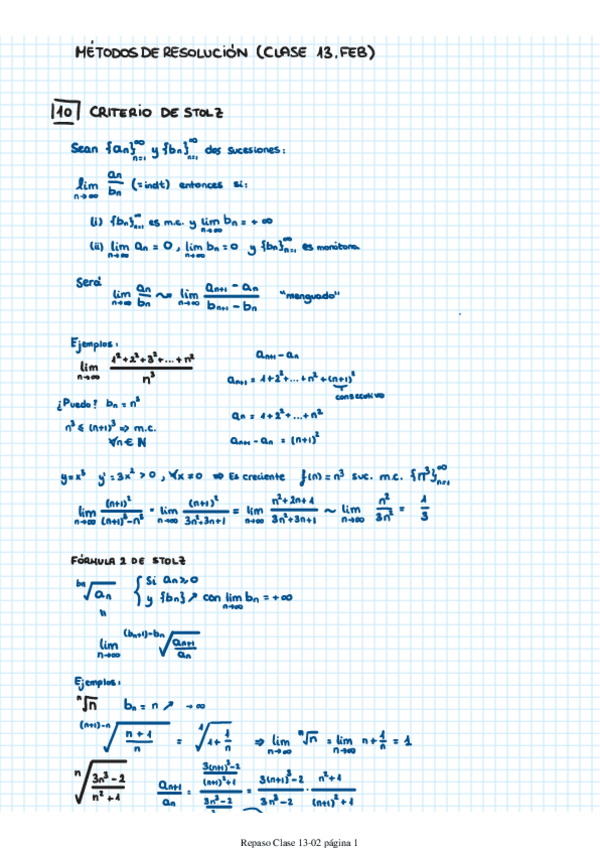 MÉTODOS DE RESOLUCIÓN (CLASE 13. FEB)
10 CRITERIO DE STOLZ
Sean {an}∞n=1 y {bn}∞n=1 dos sucesiones:
lim n→∞ an/bn (=indt) entonces si:
(i) {bn}∞n=1 es m.c. y lim n→∞ bn = +∞
(ii) lim n→∞ an = 0, lim n→∞ bn = 0 y {bn}∞n=1 es monótona
Será
lim n→∞ an/bn ⤳ lim n→∞ (an+1 - an)/(bn+1 - bn) "menguado"
Ejemplos:
lim n→∞ (1²+2²+3²+...+n²)/n³
an+1 - an
an+1 = 1+2²+...+n²+(n+1)²
consecutivo
¿Puedo? bn = n³
an = 1+2²+...+n²
n³ ≤ (n+1)³ ⇒ m.c.
∀n ∈ N
an+1 - an = (n+1)²
y=x³ y' = 3x² > 0, ∀x ≠ 0 ⇒ Es creciente f(n) = n³ suc. m.c. {n³}∞n=1
lim n→∞ (n+1)²/((n+1)³-n³) = lim n→∞ (n+1)²/(3n²+3n+1) = lim n→∞ (n²+2n+1)/(3n²+3n+1) ~ lim n→∞ n²/3n² = 1/3
FÓRMULA 2 DE STOLZ
bn√an { Si an≥0
y {bn} ↗ con lim n→∞ bn = +∞
lim n→∞ (bn+1)-bn√(an+1/an)
Ejemplos:
n√n bn = n ↗ →∞
(n+1)-n√((n+1)/n) = 1√(1+1/n) ⇒ lim n→∞ n√n = lim n→∞ n+1/n = 1
n√((3n³-2)/(n²+1)) an+1/an = ((3(n+1)³-2)/((n+1)²+1))/((3n³-2)/ = (3(n+1)³-2)/(3n³-2) · (n²+1)/((n+1)²+1)
Repaso Clase 13-02 página 1